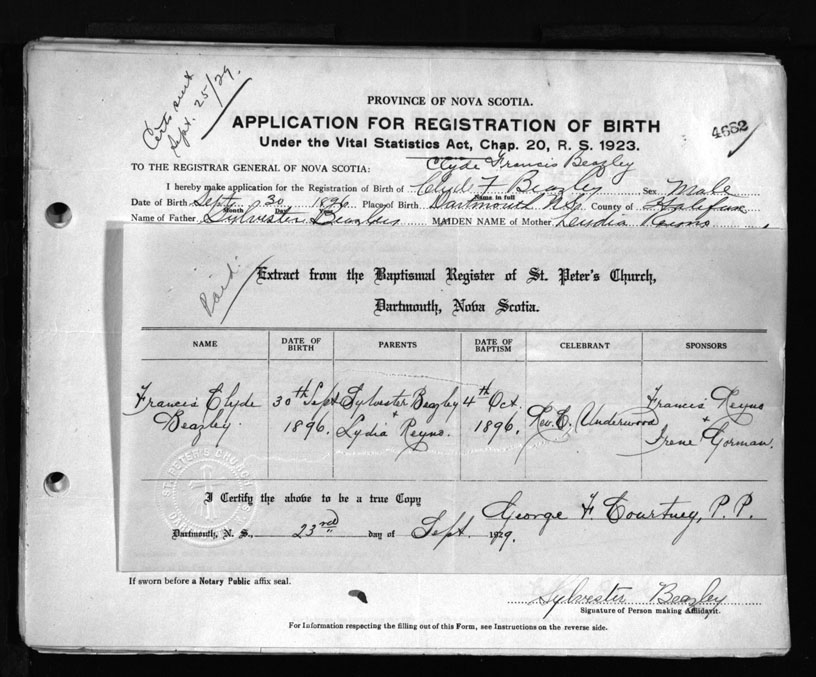 Certs sent
Sept. 25/29.
PROVINCE OF NOVA SCOTIA.
APPLICATION FOR REGISTRATION OF BIRTH
4662
Under the Vital Statistics Act, Chap. 20, R. S. 1923.
Clyde Francis Beazley
TO THE REGISTRAR GENERAL OF NOVA SCOTIA:
I hereby make application for the Registration of Birth of Clyde F Beazley Sex Male
Name in full
Date of Birth Sept 30 1896 Place of Birth Dartmouth N.S. County of Halifax
Month Day
Name of Father Sylvester Beazley MAIDEN NAME of Mother Lydia
Paid.
Extract from the Baptismal Register of St. Peter's Church,
Dartmouth, Nova Scotia.
NAME DATE OF BIRTH PARENTS DATE OF BAPTISM CELEBRANT SPONSORS
Francis Clyde Beazley 30th Sept 1896. Sylvester Beazley + Lydia Reyno. 4th Oct. 1896. Rev. E. Underwood Francis Reyno + Irene Gorman.
ST. PETER'S CHURCH
I Certify the above to be a true Copy George F. Courtney, P. P.
Dartmouth, N. S., 23rd day of Sept. 1929.
If sworn before a Notary Public affix seal.
Sylvester Beazley
Signature of Person making Affidavit.
For Information respecting the filling out of this Form, see Instructions on the reverse side.